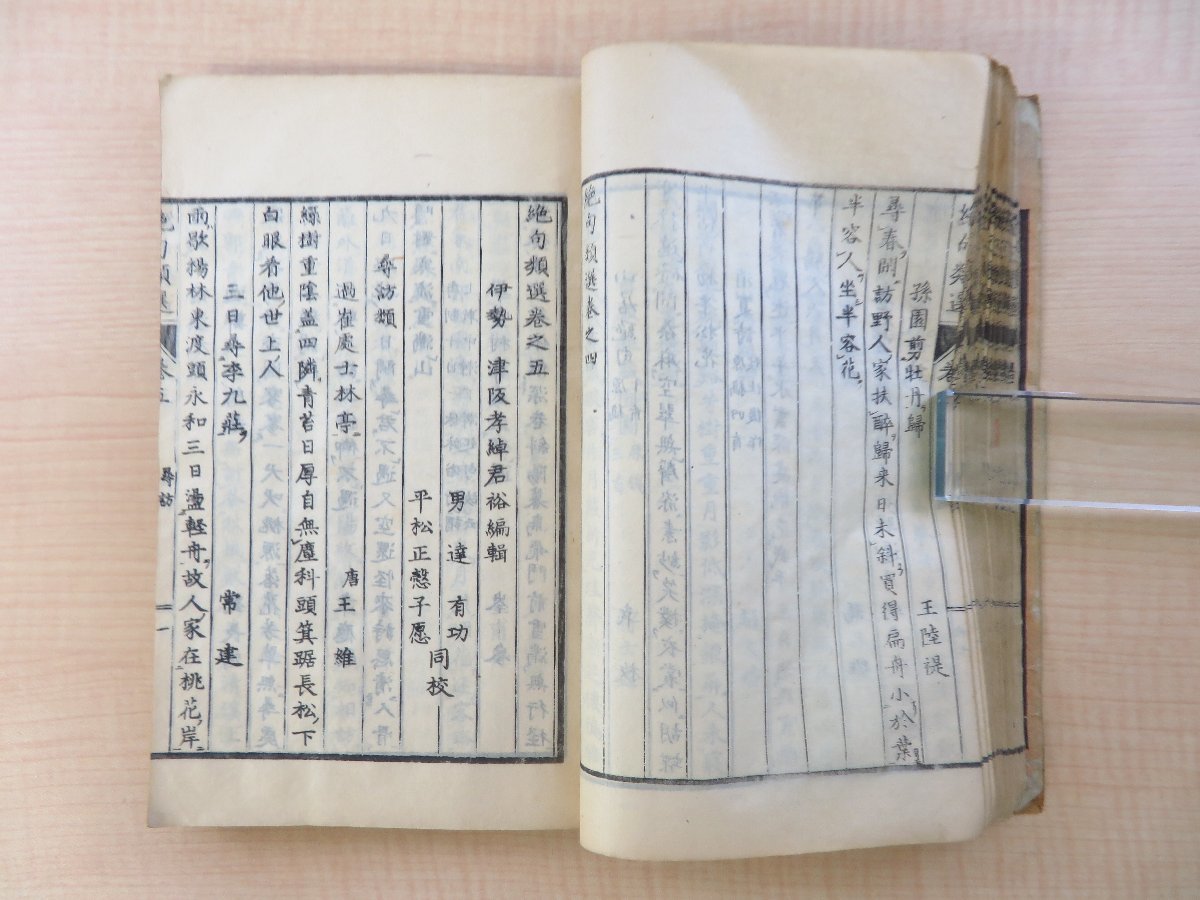 孫園剪牡丹歸
王陸禔
尋春閒訪野人家扶醉歸来日未斜買得扁舟小於葉
半容人坐半容花
絶句類選卷之四
絶句類選卷之五
伊勢 津阪孝綽君裕編輯
男 達 有功
平松正愨子愿
同校
尋訪類
過崔處士林亭 唐王維
緑樹重陰盖四隣青苔日厚自無塵科頭箕踞長松下
白眼看他世上人
三日尋李九莊 常建
雨歇楊林東渡頭永和三日盪軽舟故人家在桃花岸
絶句類選
卷五
尋訪
一